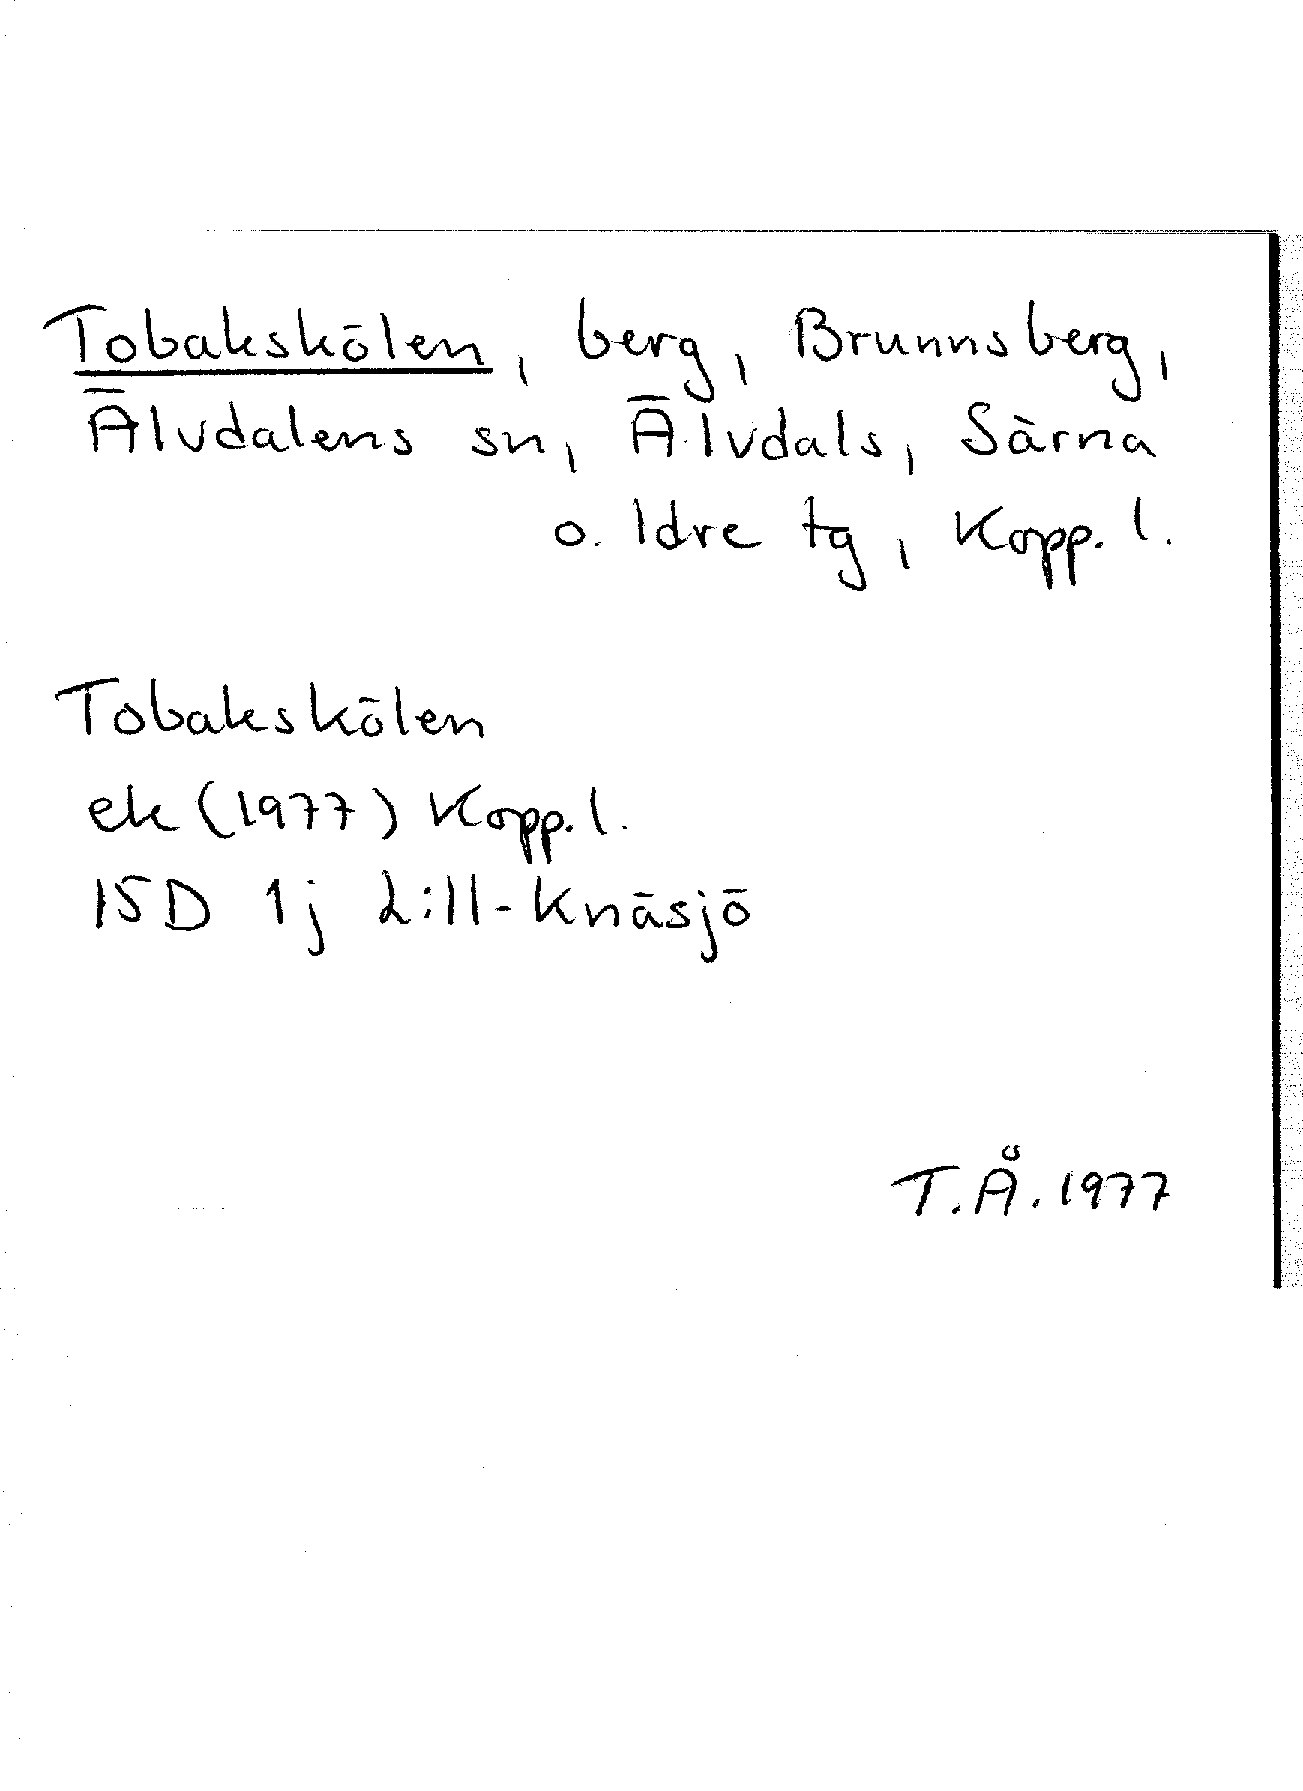 Tobakskölen, berg, Brunnsberg,
Älvdalens sn, Älvdals, Särna
o. Idre tg, Kopp. l.
Tobakskölen
ek (1977) Kopp. l.
15D 1j Lill-Knäsjö
T.Å. 1977